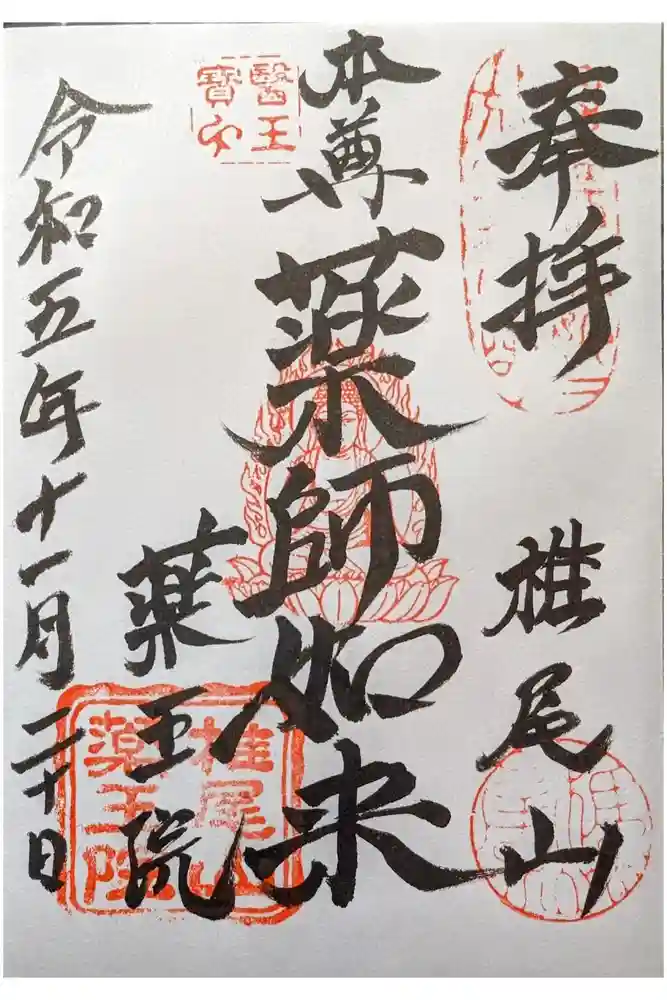 奉拝
椎尾山
本尊
薬師如来
薬王院
令和五年十一月二十日
醫王
寶
椎尾山
薬王院